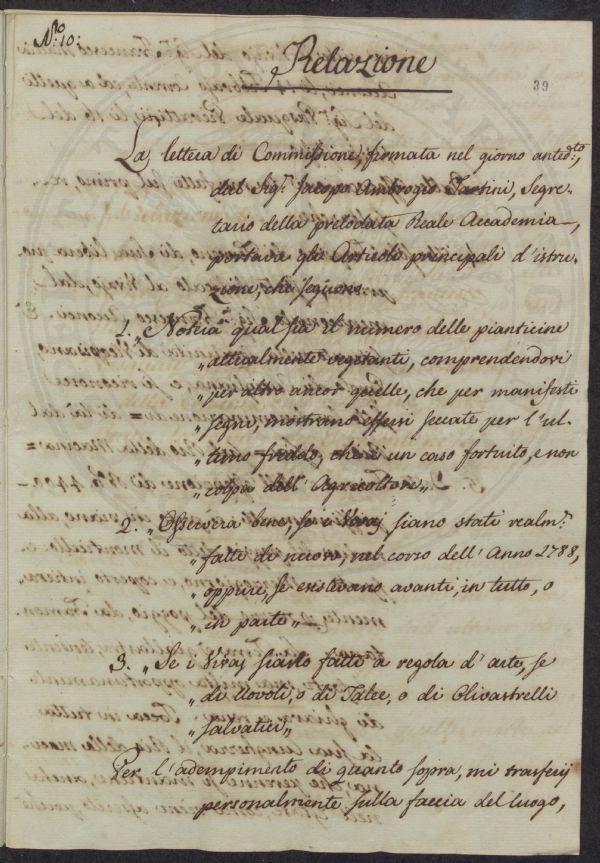 N.º 10:
Relazione
39
La lettera di Commissione, firmata nel giorno anted.to,
dal Sig.r Jacopo Ambrogio Tartini, Segre=
tario della prelodata Reale Accademia,
portava gli Articoli principali d'istru=
zione, che seguono.
1. „Noterà qual sia il numero delle pianticine
„attualmente vegetanti, comprendendovi
„per altro ancor quelle, che per manifesti
„segni, mostrano essersi seccate per l'ul=
„timo freddo, che è un caso fortuito, e non
„colpa dell'Agricoltore„
2. „Osserverà bene, se i Vivaj siano stati realm.e
„fatti di nuovo, nel corso dell'Anno 1788,
„oppure, se esistevano avanti, in tutto, o
„in parte„
3. „Se i Vivaj siano fatti a regola d'arte, se
„di Uovoli, o di Talee, o di Olivastrelli
„salvatici„
Per l'adempimento di quanto sopra, mi trasferij
personalmente sulla faccia del luogo,